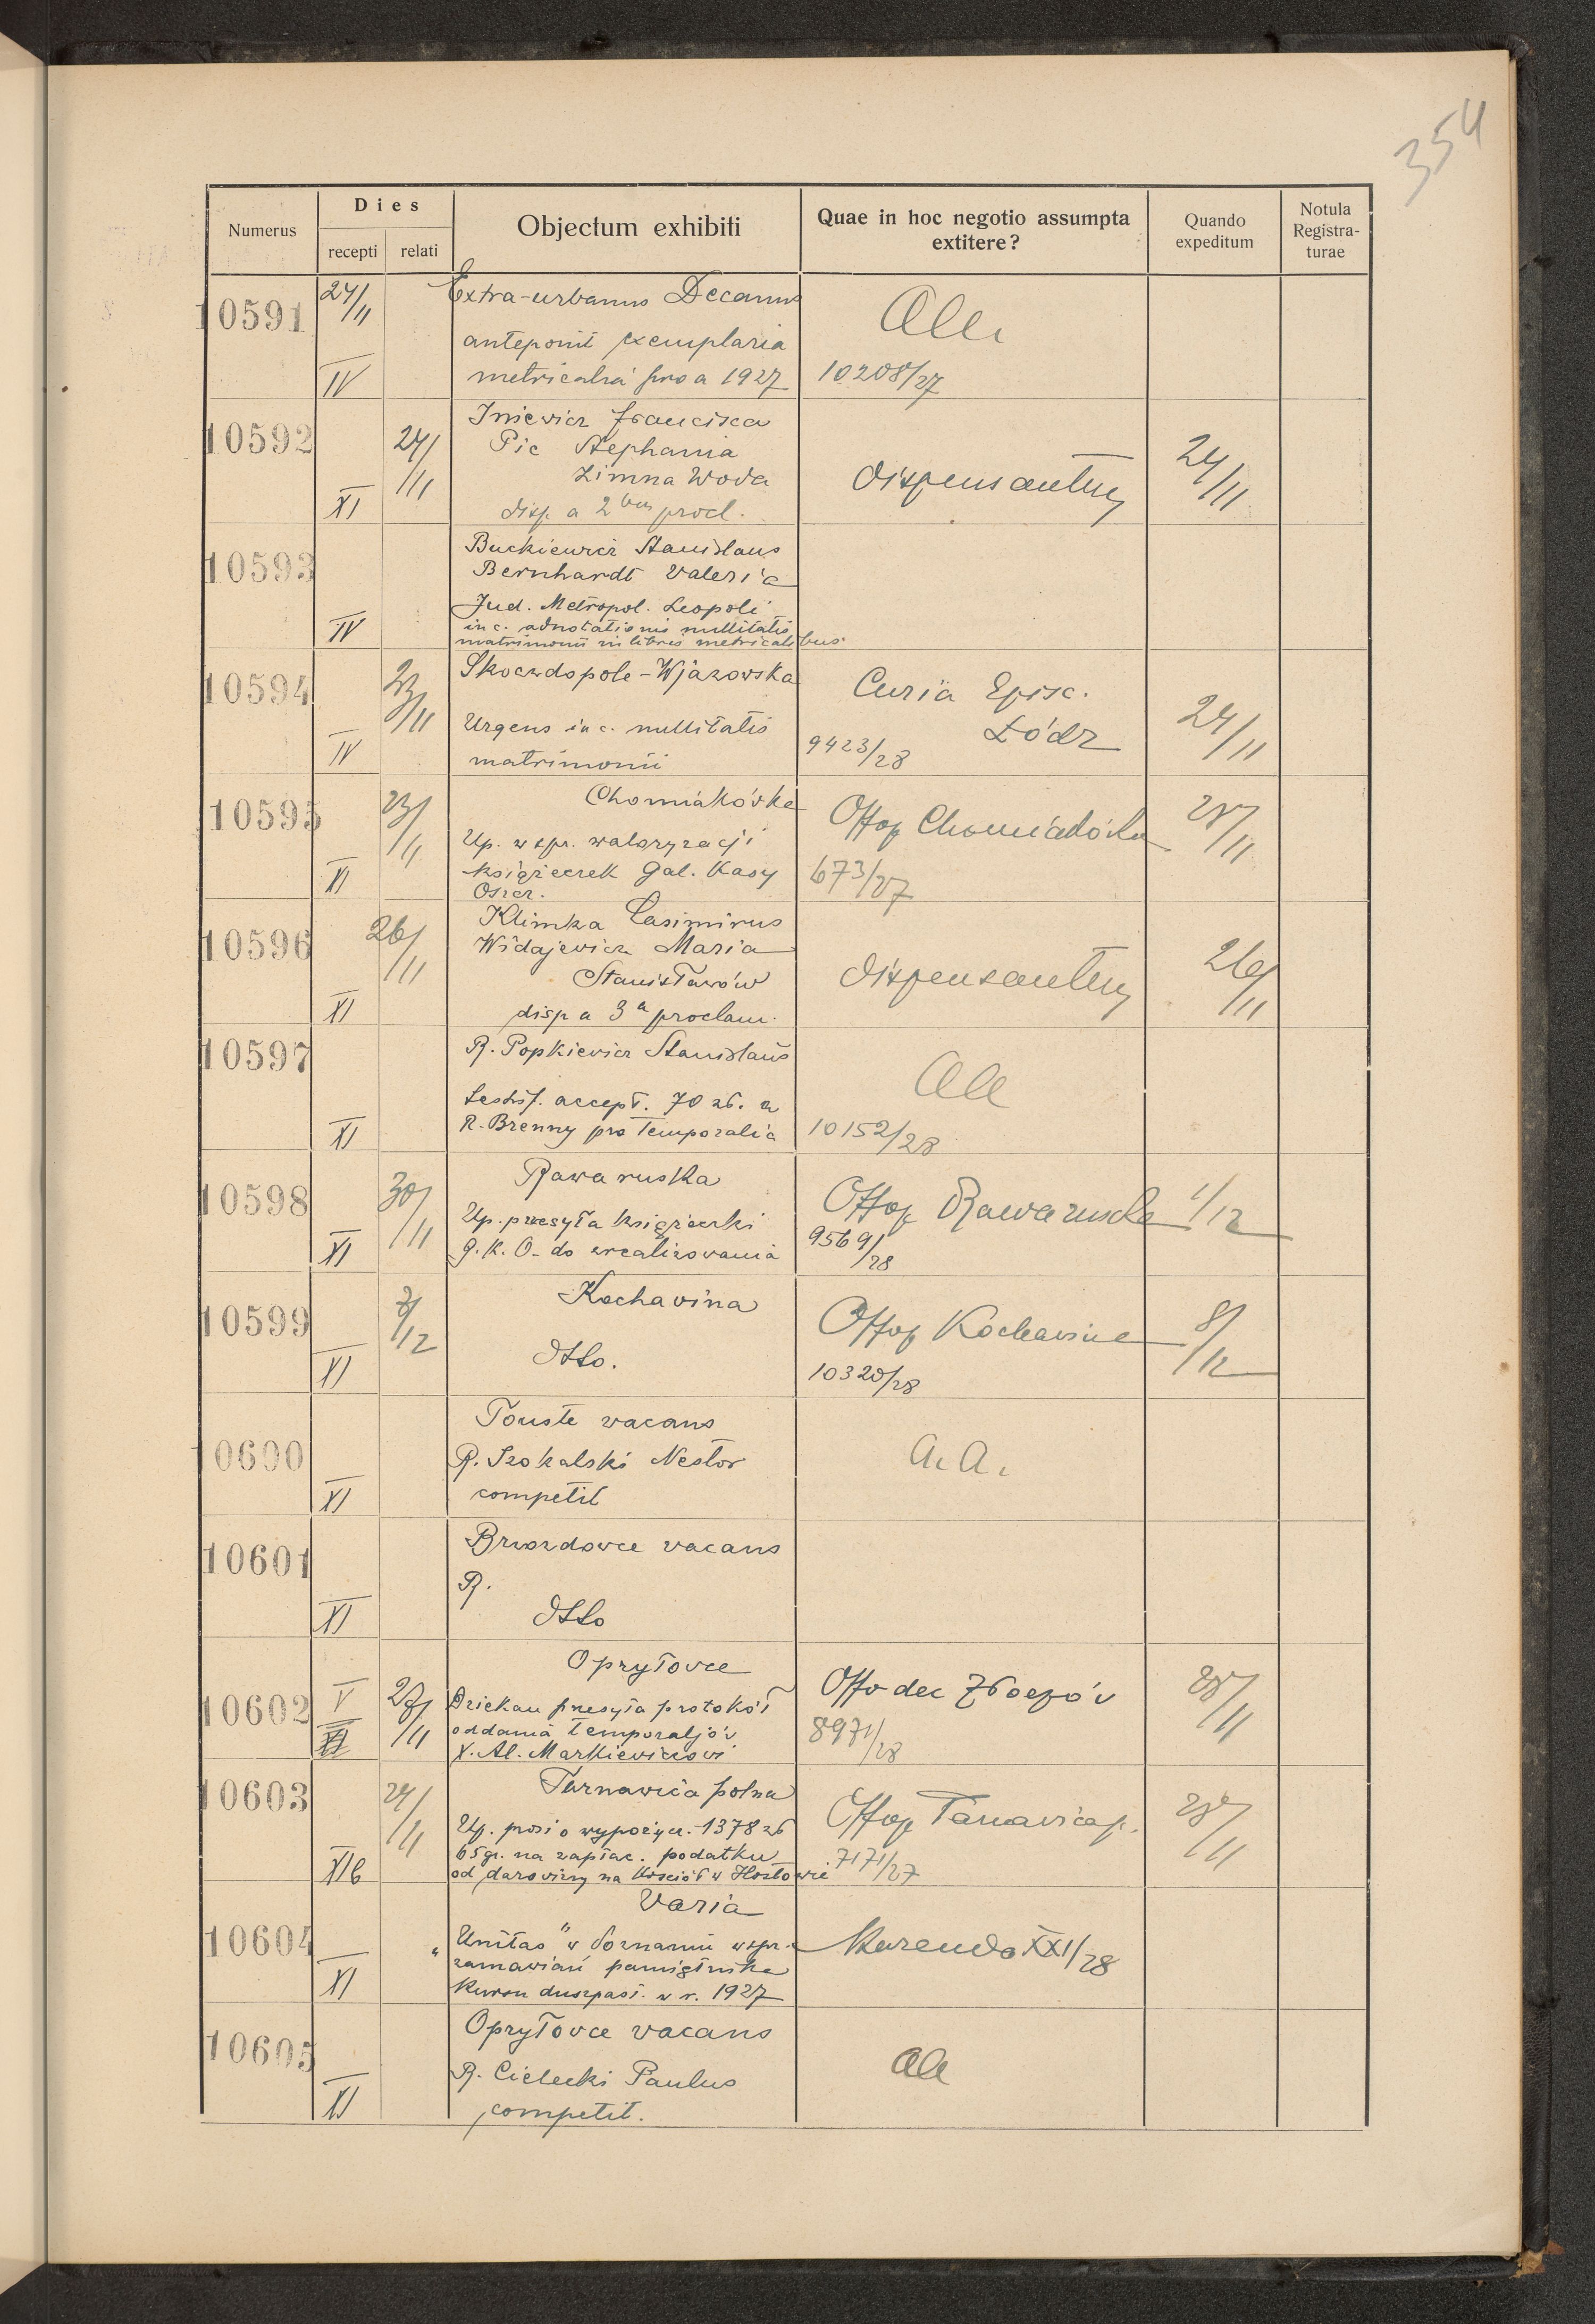 354
Numerus
Dies
recepti relati
Objectum exhibiti
Quae in hoc negotio assumpta
extitere?
Quando
expeditum
Notula
Registra-
turae
10591 24/11 Extra-urbanus Decanus
anteponit exemplaria
IV metricalia pro a 1927
10208/27
10592 24/11 Iniewicz Francisca
Pic Stephania
Zimna Woda
XI disp. a 2bus procl.
dispensantur 24/11
10593 Buckiewicz Stanislaus
Bernhardt Valeria
Jud. Metropol. Leopoli
IV in c. adnotationis nullitatis
matrimonii in libris metricalibus
10594 23/11 Skoczdopole-Wjazowska
Urgens in c. nullitatis
IV matrimonii
Curia Episc.
Łódz 24/11
9423/28
10595 23/11 Chomiakówka
Up. w spr. waloryzacji
XI książeczek Gal. Kasy
Oszcz.
Offop Chomiakówka 28/11
673/27
10596 26/11 Klimka Casimirus
Widajewicz Maria
Stanisławów
XI disp a 3a proclam.
dispensantur 26/11
10597 R. Popkiewicz Stanislaus
accept. 70 zł. a
XI R. Brenny pro temporalia
10152/28
10598 30/11 Rawa ruska
Up. przesyła książeczki
XI G.K.O. do zrealizowania
Offop Rawa ruska 1/12
9569/28
10599 7/12 Kochavina
XI dtto.
Offop Kochavina 8/12
10320/28
10600 Touste vacans
R. Szokalski Nestor
XI competit
a. a.
10601 Brzozdowce vacans
R.
XI dtto
10602 V 27/11 Opryłovce
Dziekan przesyła protokół
XI oddania temporaljów
X. Al. Markiewiczowi
Offo dec Zborów 28/11
8971/28
10603 24/11 Tarnawica polna
Up. prosi o wypożycz. 1378 zł
65 gr. na zapłac. podatku
XIb od darowizny na kościół w Hostowie
Offop Tarnavica p. 28/11
7171/27
10604 Varia
"Unitas" w Poznaniu w spr.
zamawiań pamiętnika
XI Kursu duszpast. w r. 1927
Kurenda XXI/28
10605 Opryłovce vacans
R. Cielecki Paulus
XI competit.
aa